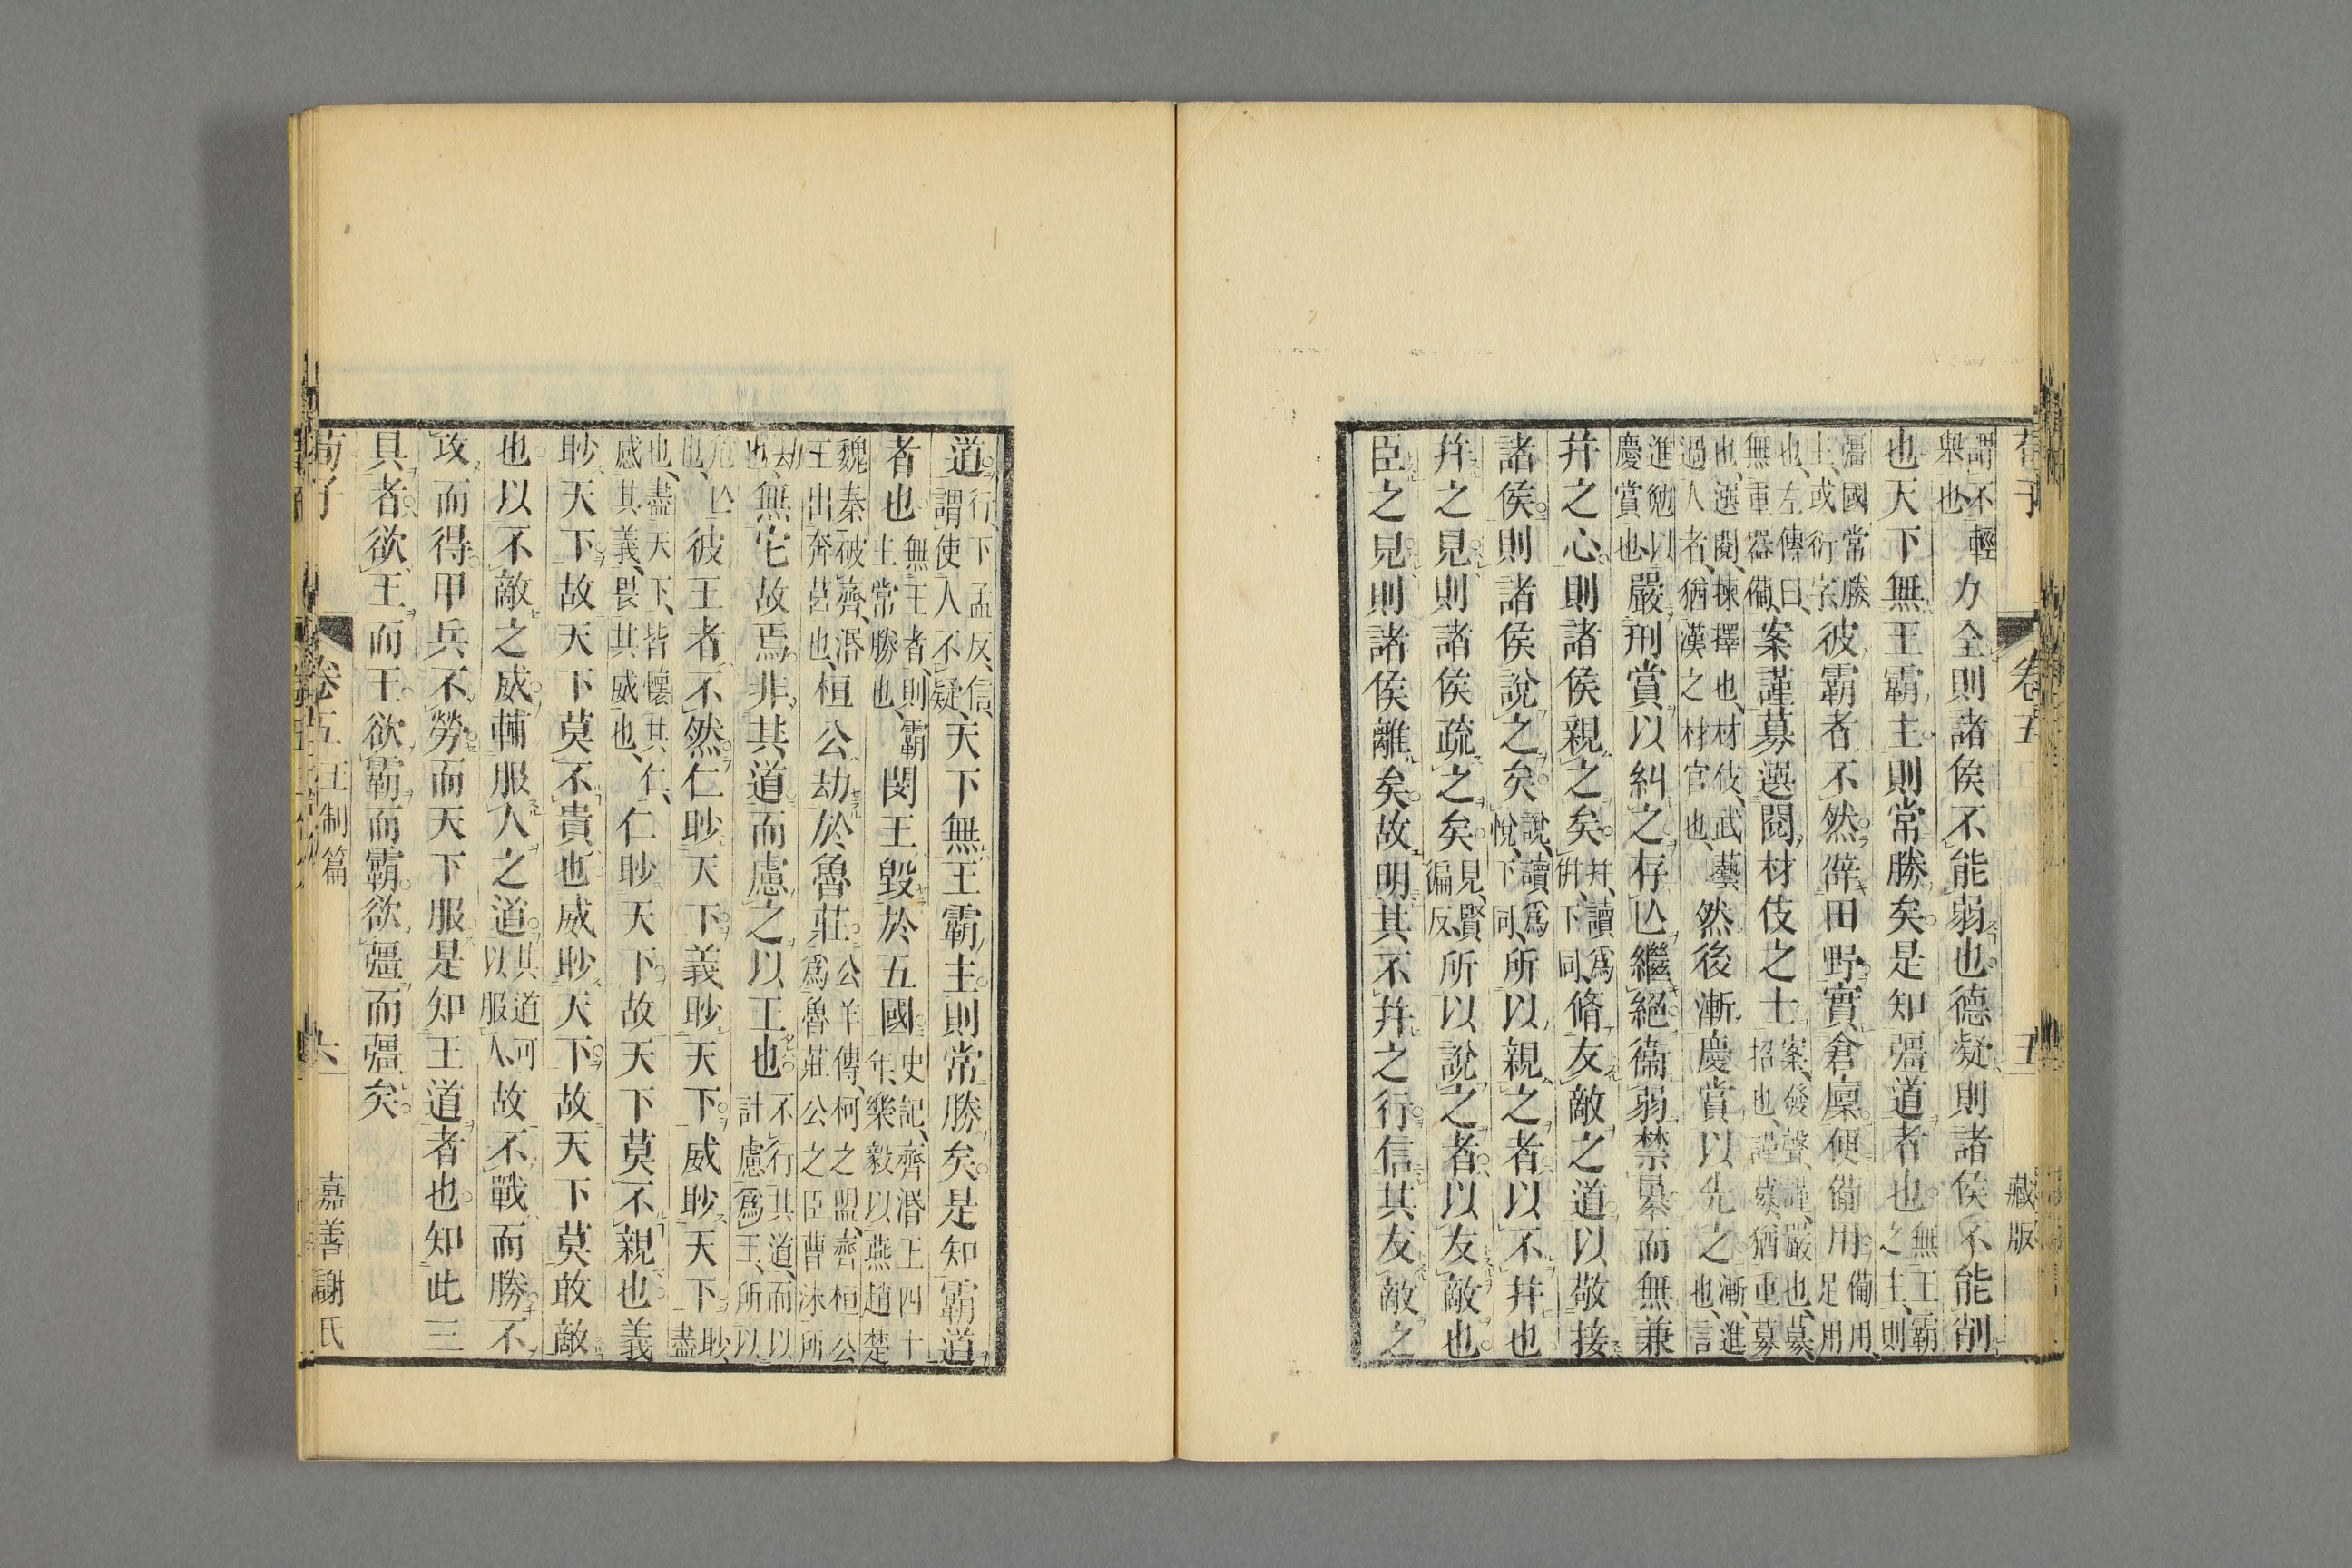 荀子
卷五
五
藏版
謂不輕舉也力全則諸侯不能弱也德凝則諸侯不能削
也天下無王霸主則常勝矣是知彊道者也無王霸之主則
彊國常勝主或衍字彼霸者不然辟田野實倉廩便備用備用足用
也左傳曰無重器備案謹募選閱材伎之士案發聲謹嚴也募招也謹募猶重募
也選閱揀擇也材伎武藝過人者猶漢之材官也然後漸慶賞以先之漸進也言
進勉以慶賞也嚴刑賞以糾之存亾繼絕衞弱禁暴而無兼
幷之心則諸侯親之矣幷讀爲倂下同脩友敵之道以敬接
諸侯則諸侯說之矣說讀爲悅下同所以親之者以不幷也
幷之見則諸侯疏之矣見賢徧反所以說之者以友敵也
臣之見則諸侯離矣故明其不幷之行信其友敵之
道行下孟反信謂使人不疑天下無王霸主則常勝矣是知霸道
者也無王者則霸主常勝也閔王毀於五國史記齊湣王四十年樂毅以燕趙楚
魏秦破齊湣王出奔莒也桓公劫於魯莊公羊傳柯之盟齊桓公爲魯莊公之臣曹沬所
劫也無它故焉非其道而慮之以王也不行其道而以計慮爲王所以
危亾也彼王者不然仁眇天下義眇天下威眇天下眇盡
也盡天下皆懷其仁感其義畏其威也仁眇天下故天下莫不親也義
眇天下故天下莫不貴也威眇天下故天下莫敢敵
也以不敵之威輔服人之道其道可以服人故不戰而勝不
攻而得甲兵不勞而天下服是知王道者也知此三
具者欲王而王欲霸而霸欲彊而彊矣
荀子
卷五
王制篇
六
嘉善謝氏